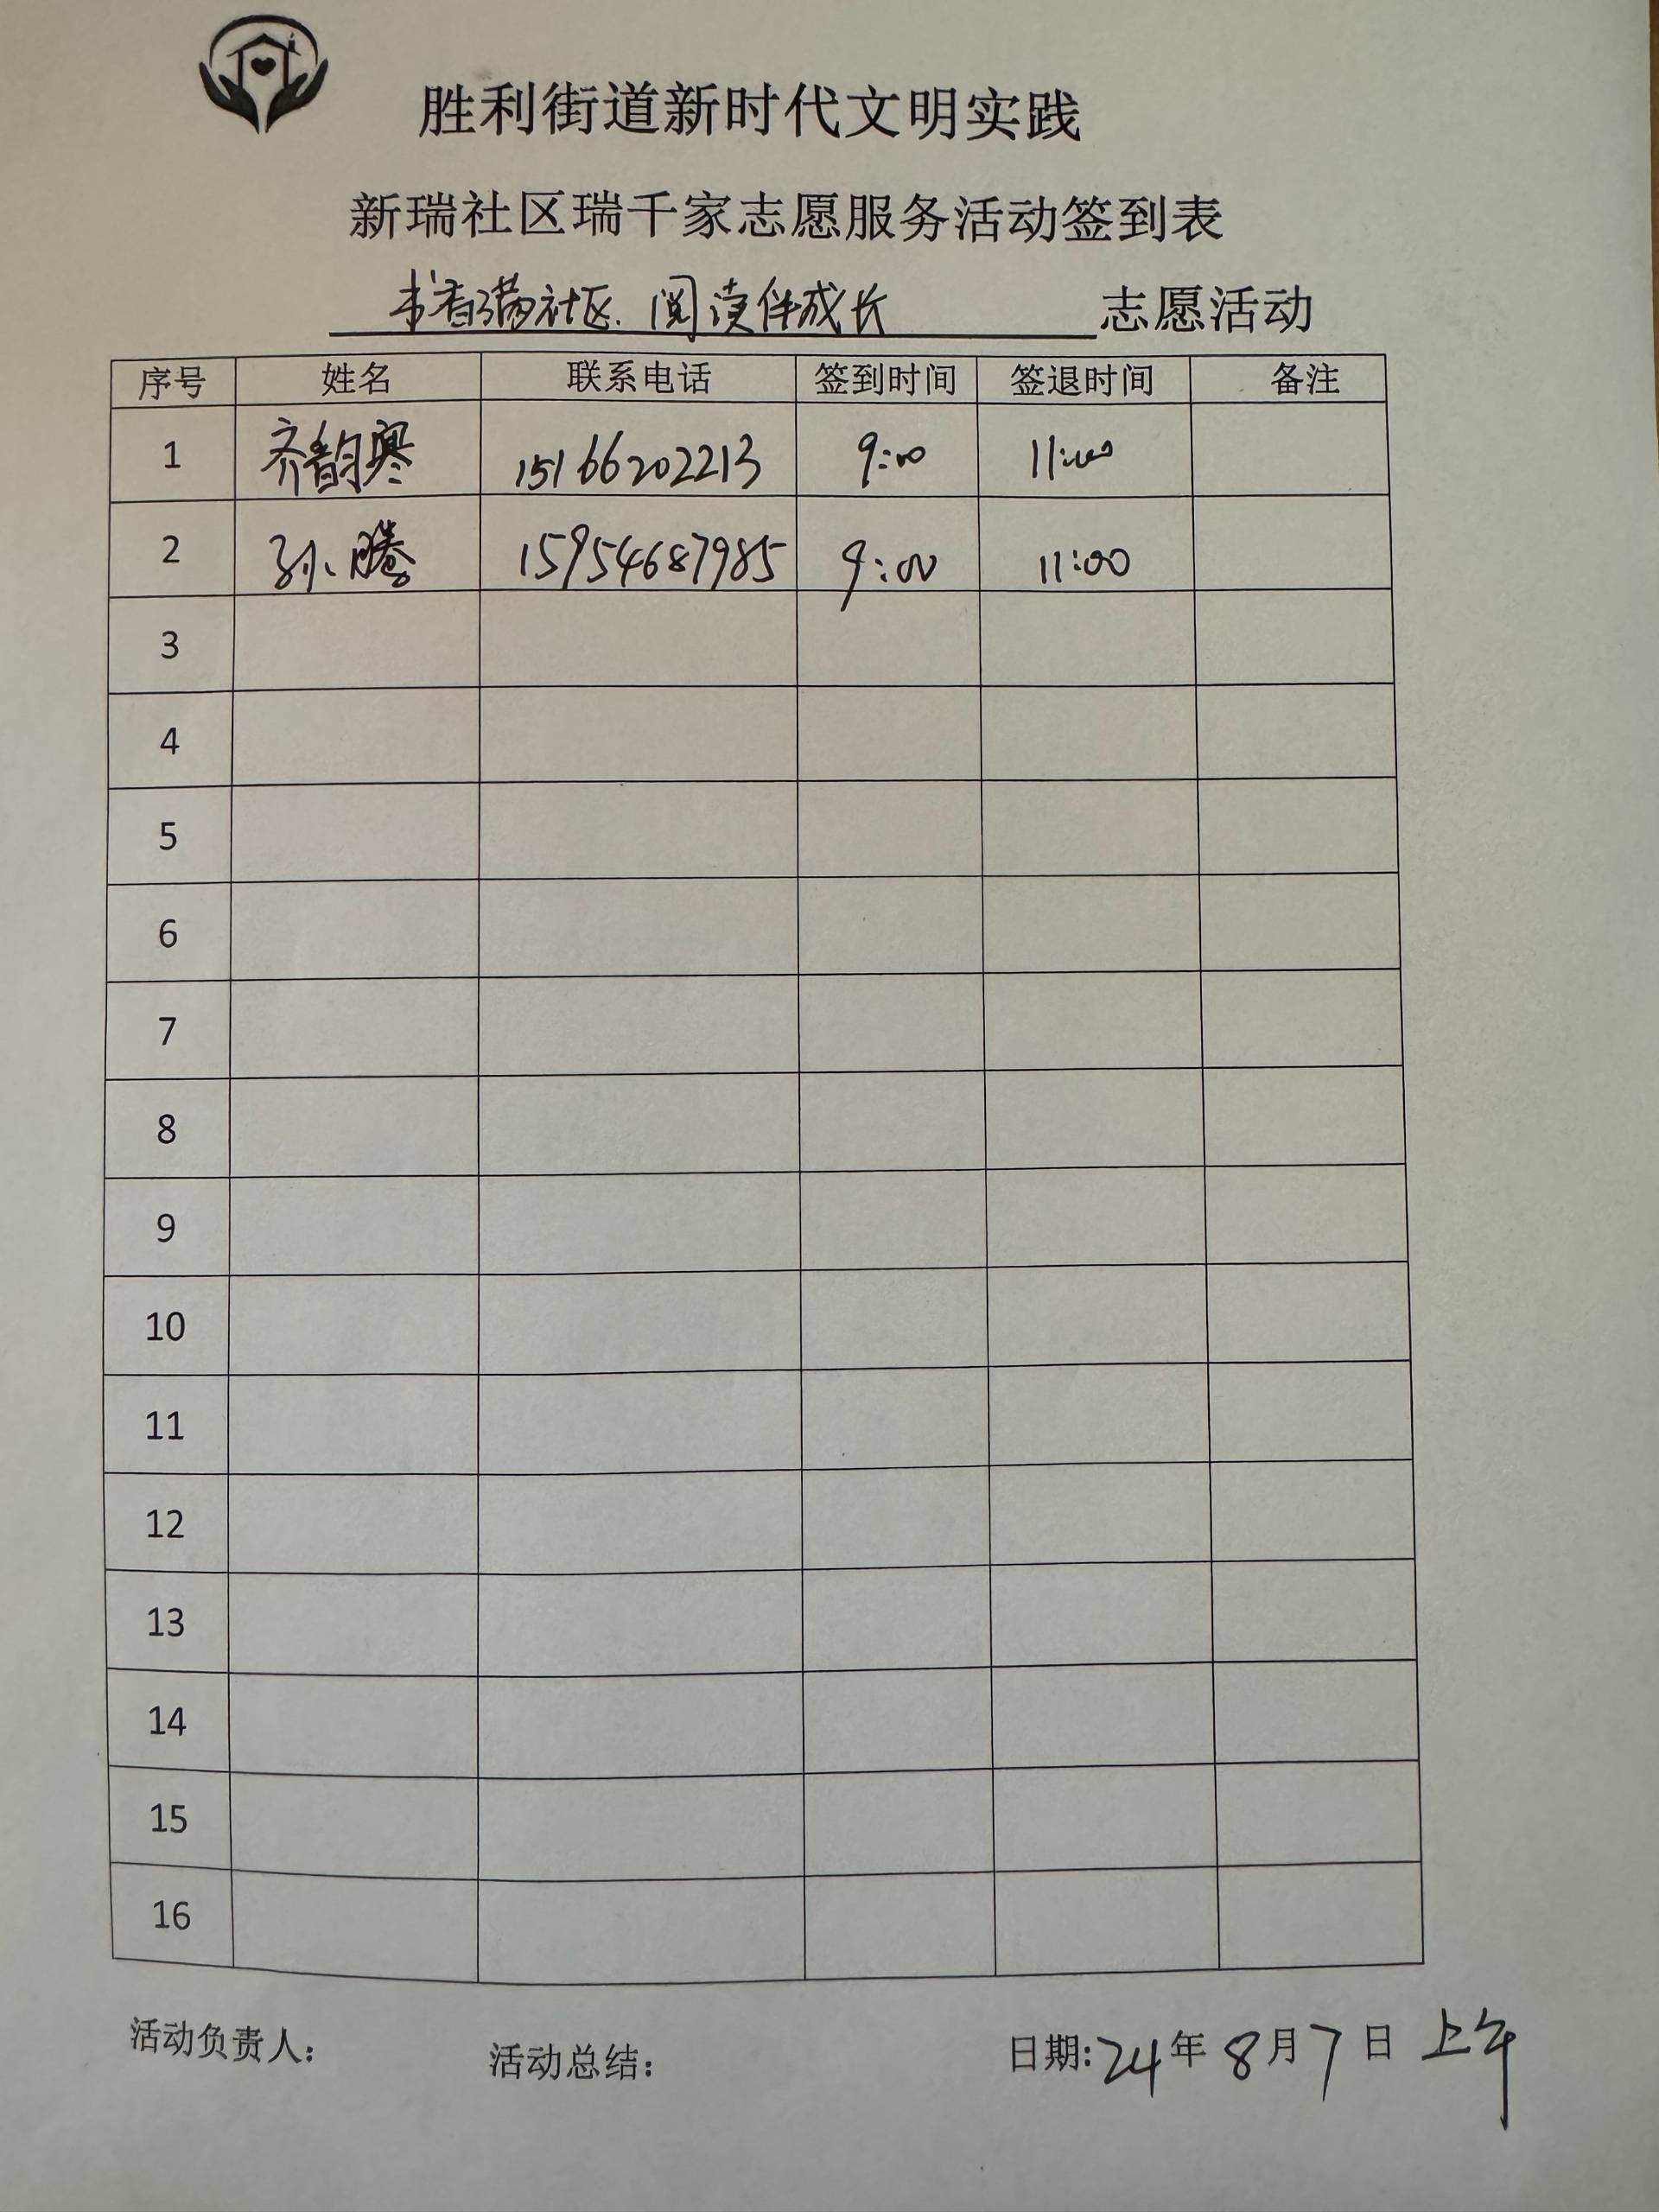 胜利街道新时代文明实践
新瑞社区瑞千家志愿服务活动签到表
书香满社区.阅读伴成长 志愿活动
序号 姓名 联系电话 签到时间 签退时间 备注
1 齐韵寒 15166202213 9:00 11:00
2 孙腾 15954687985 9:00 11:00
3
4
5
6
7
8
9
10
11
12
13
14
15
16
活动负责人: 活动总结: 日期:24年8月7日 上午